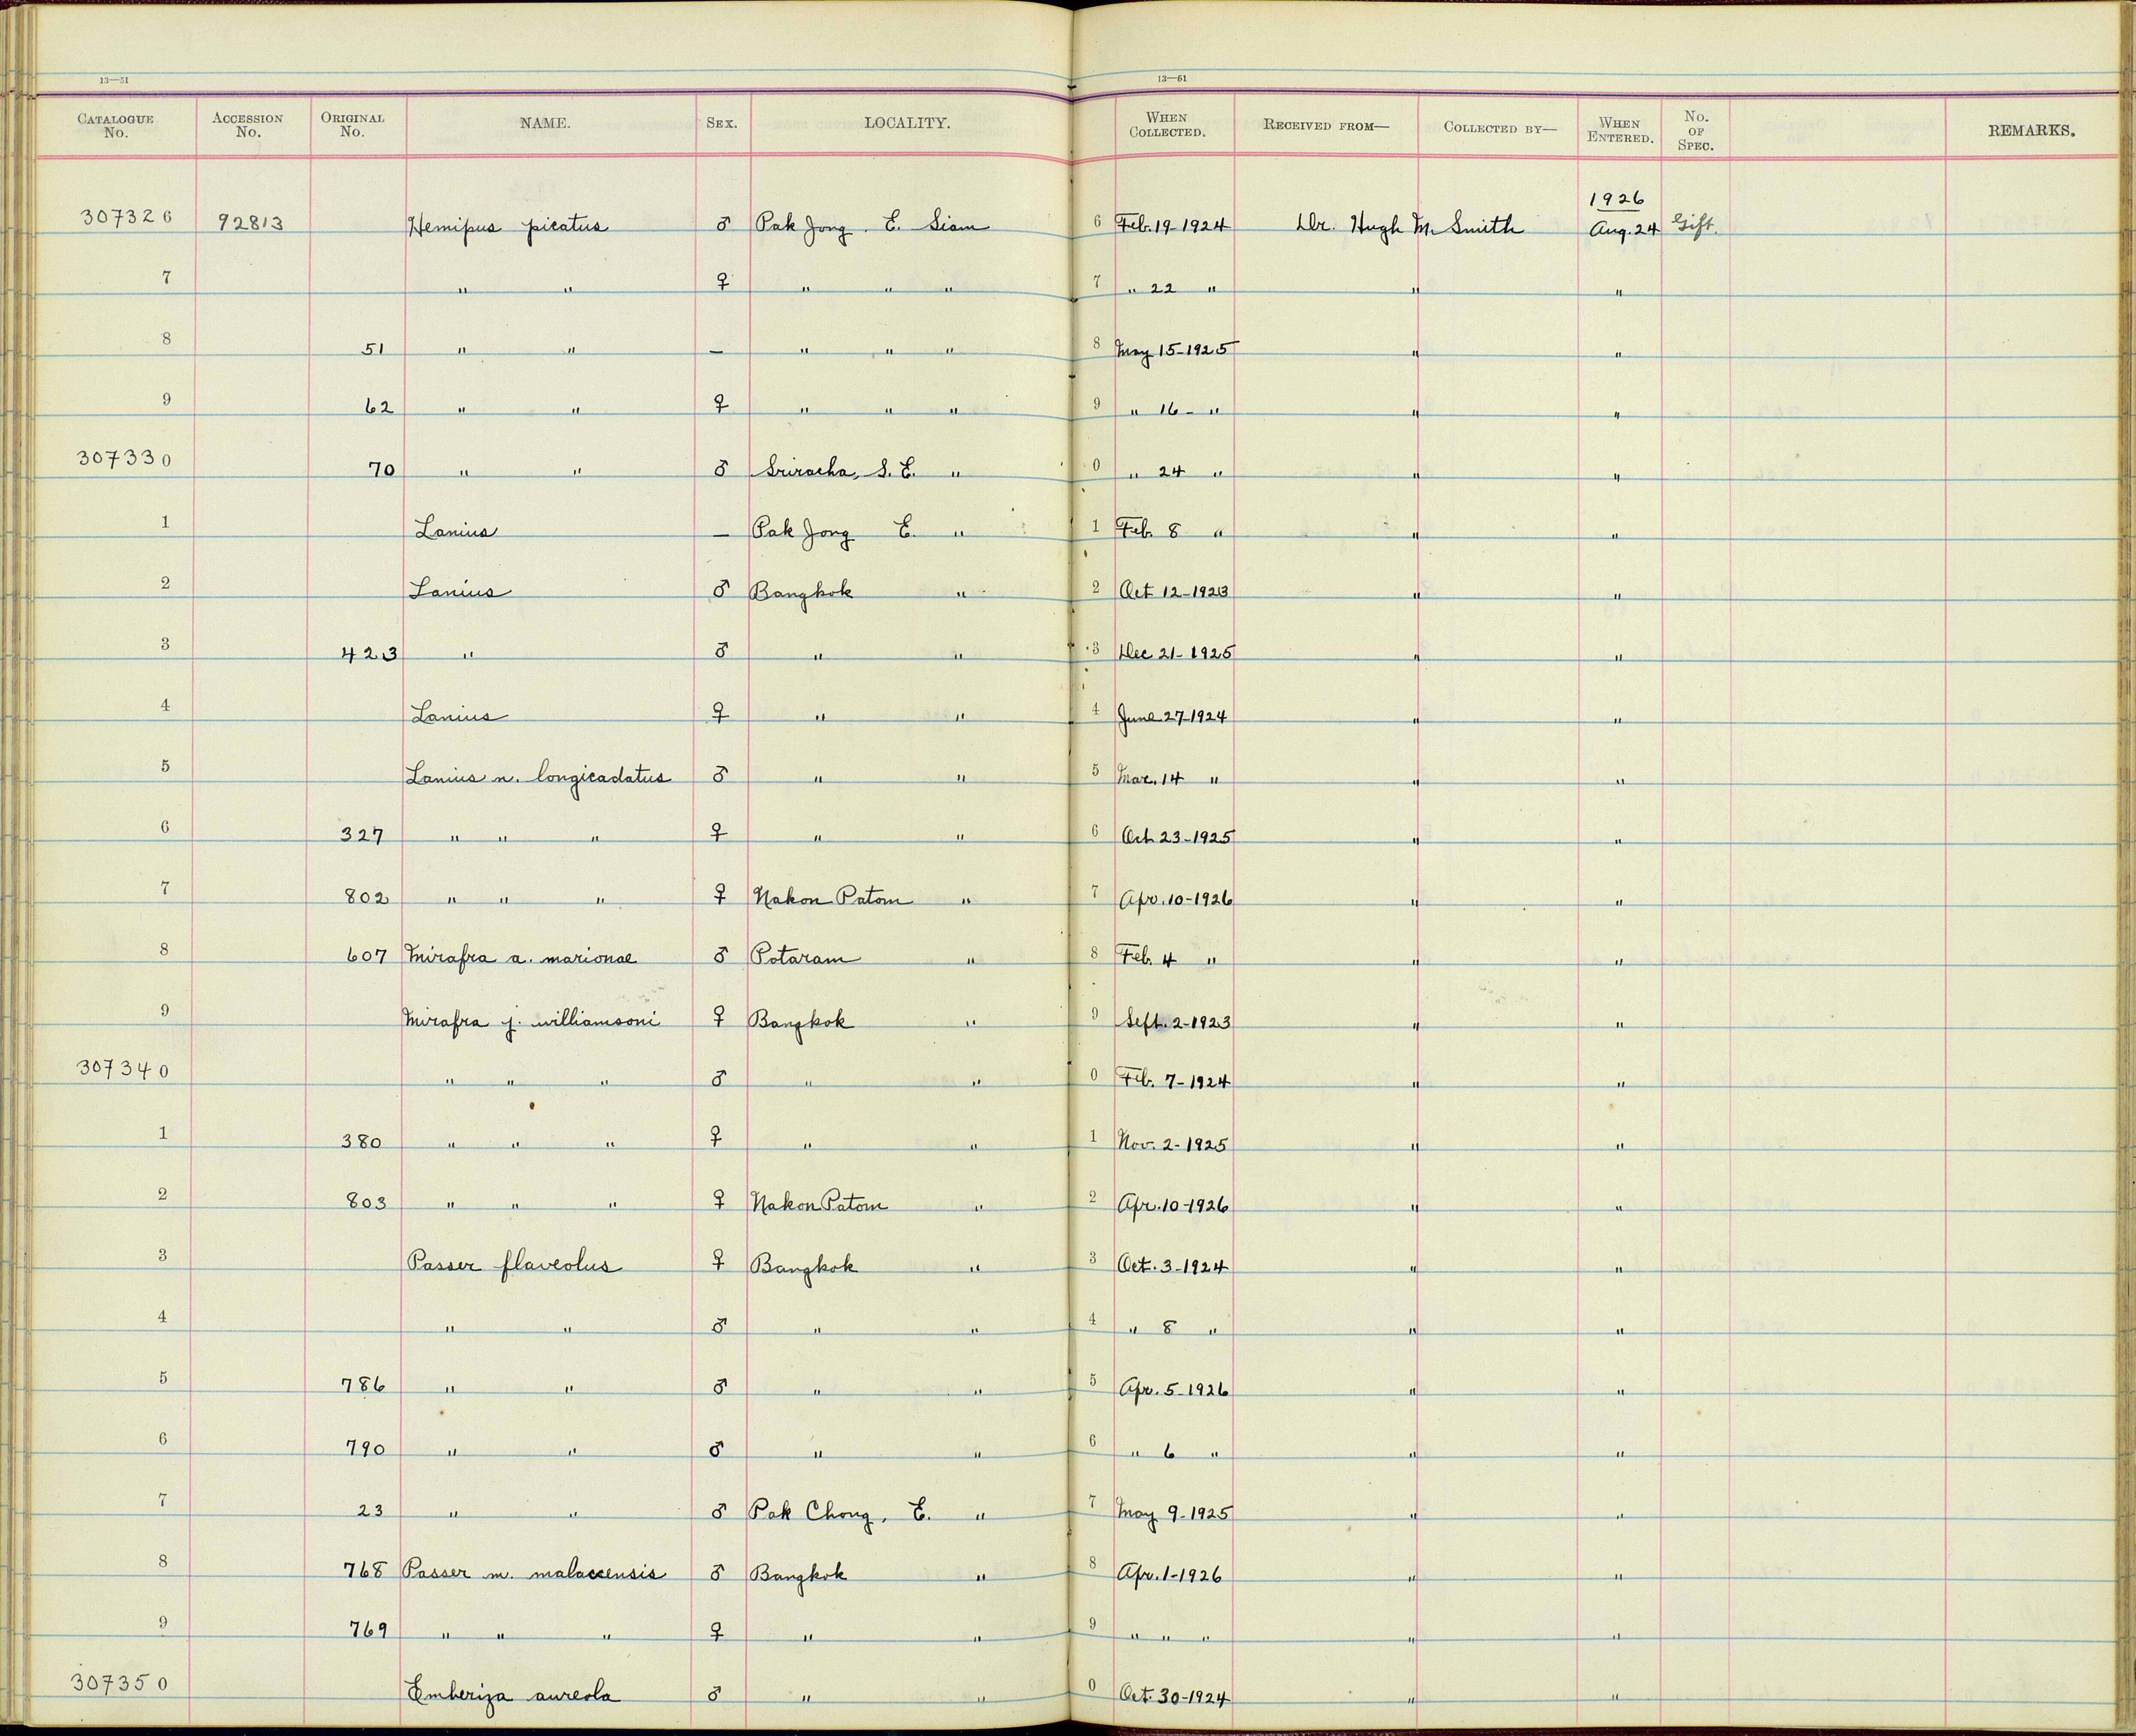 13—51 13—51
CATALOGUE No. ACCESSION No. ORIGINAL No. NAME. SEX. LOCALITY. WHEN COLLECTED. RECEIVED FROM— COLLECTED BY— WHEN ENTERED. No. OF SPEC. REMARKS.
1926
307326 92813 Hemipus picatus ♂ Pak Jong. E. Siam 6 Feb. 19-1924 Dr. Hugh M. Smith Aug. 24 Gift.
7 " " ♀ " " " 7 " 22 " " "
8 51 " " — " " " 8 May 15-1925 " "
9 62 " " ♀ " " " 9 " 16- " " "
307330 70 " " ♂ Sriracha, S. E. " 0 " 24 " " "
1 Lanius — Pak Jong E. " 1 Feb. 8 " " "
2 Lanius ♂ Bangkok " 2 Oct 12-1923 " "
3 423 " ♂ " " 3 Dec 21-1925 " "
4 Lanius ♀ " " 4 June 27-1924 " "
5 Lanius n. longicadatus ♂ " " 5 Mar. 14 " " "
6 327 " " " ♀ " " 6 Oct 23-1925 " "
7 802 " " " ♀ Nakon Patom " 7 Apr. 10-1926 " "
8 607 Mirafra a. marionae ♂ Potaram " 8 Feb. 4 " " "
9 Mirafra j. williamsoni ♀ Bangkok " 9 Sept. 2-1923 " "
307340 " " " ♂ " " 0 Feb. 7-1924 " "
1 380 " " " ♀ " " 1 Nov. 2-1925 " "
2 803 " " " ♀ Nakon Patom " 2 Apr. 10-1926 " "
3 Passer flaveolus ♀ Bangkok " 3 Oct. 3-1924 " "
4 " " ♂ " " 4 " 8 " " "
5 786 " " ♂ " " 5 Apr. 5-1926 " "
6 790 " " ♂ " " 6 " 6 " " "
7 23 " " ♂ Pak Chong, E. " 7 May 9-1925 " "
8 768 Passer m. malaccensis ♂ Bangkok " 8 Apr. 1-1926 " "
9 769 " " " ♀ " " 9 " " " " "
307350 Emberiza aureola ♂ " " 0 Oct. 30-1924 " "